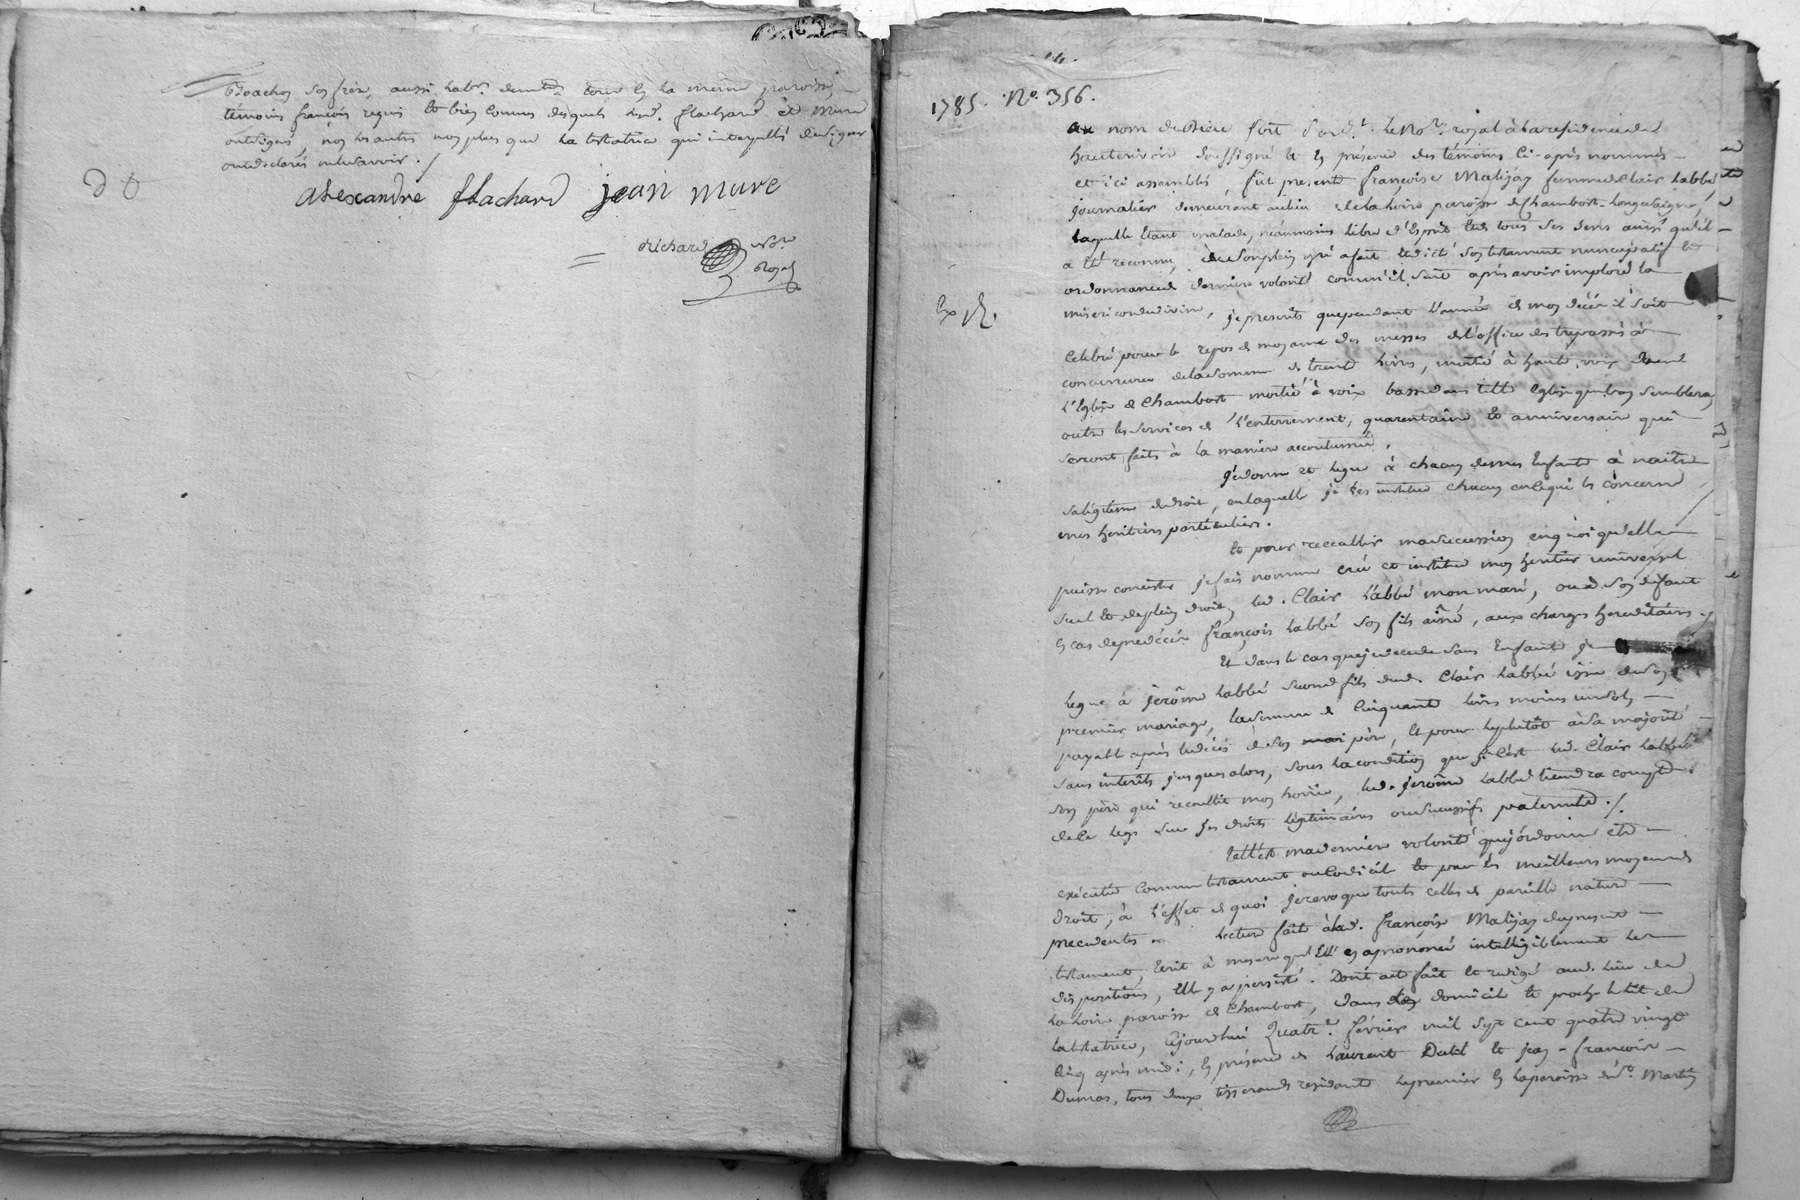 Joachim son frère, aussi hab.t demt tous en la même paroisse,
témoins françois requis et bien connus desquels led. flachard et Mure
ont signé, non les autres non plus que la testatrice qui interpellés de signer
ont déclaré ne le savoir ./
D t
alexandre flachard jean mure
Richard No.re
Royal
1785. No. 356.
au nom de Dieu soit pard.t le No.re royal à la residence de
hauterivoire soussigné et en présence des témoins ci-après nommés
et ici assemblés, fut presente françoise Matijay femme de Clair Labbé
journalier demeurant au lieu de la hoirie paroisse de Chambost-Longuesaigne,
laquelle étant malade, néanmoins libre d'esprit et de tous ses sens ainsi qu'il
a été reconnu, de son plein gré a fait et dicté son testament nuncupatif et
ordonnance de dernière volonté comm'il suit après avoir imploré la
misericorde divine, je prescrits que pendant l'année de mon décès il soit
Exp.
Celebré pour le repos de mon ame des messes de l'office des trepassés à
concurrence de la somme de trente livres, moitié à haute voix dans
l'Eglise de Chambost moitié à voix basse dans telle Eglise que bon semblera
outre les services de l'enterrement, quarantaine et anniversaire qui
seront faits à la manière accoutumée.
Je donne et legue à chacun de mes Enfants à naître
sa légitime de droit, en laquelle je les institue chacun en ce qui les concerne
mes heritiers particuliers.
Et pour recueillir ma succession en quoi qu'elle
puisse consister je fais nomme crée et institue mon heritier universel
seul et de plein droit, led. Clair Labbé mon mari, ou à son défaut
en cas de predécès françois Labbé son fils aîné, aux charges hereditaires ./
Et dans le cas que je decede sans Enfants je
legue à jerôme Labbé second fils dud. Clair Labbé issu de son
premier mariage, la somme de Cinquante livres moins un sol,
payable après le décès de son père, et pour le plutôt à sa majorité
sans interêts jusques alors, sous la condition que si c'est led. Clair Labbé
son père qui recueillit mon hoirie, led. jerôme Labbé tiendra compte
de ce legs sur ses droits légitimaires ou successifs paternels ./.
Telle est ma derniere volonté que j'ordonne être
exécutée comme testament ou Codicil et par les meilleurs moyens de
droit, à l'effet de quoi je revoque toutes celles de pareille nature
precedentes. Lecture faite à lad. françoise Matijay du present
testament, écrit à mesure qu'Elle en a prononcé intelligiblement les
dispositions, Elle y a persisté. Dont acte fait et redigé aud. lieu de
la hoirie paroisse de Chambost, dans le domicile et proche le lit de
la testatrice, cejourdhui quatr.e février mil sept cent quatre vingt
cinq après midi, en présence de Laurent Dutel et jean-françois
Dumas, tous deux tisserands residants le premier en la paroisse de St. Martin